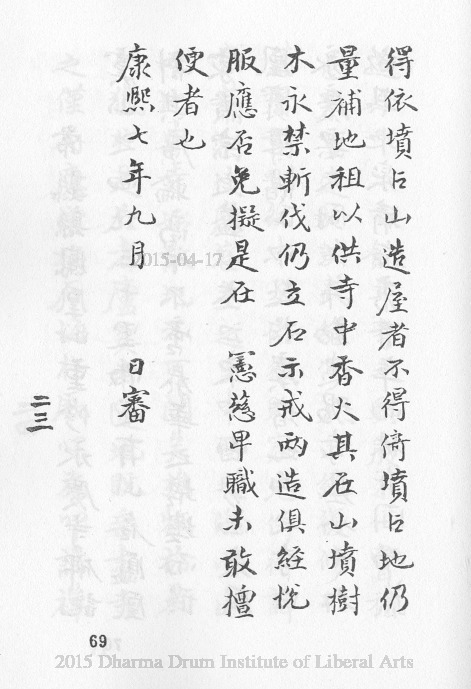 得依墳占山造屋者不得倚墳占地仍
量補地租以供寺中香火其在山墳樹
木永禁斬伐仍立石示戒两造俱經悅
服應否免擬是在 憲慈卑職未敢擅
便者也
康熙七年九月 日審
二三
69
2015-04-17
2015 Dharma Drum Institute of Liberal Arts